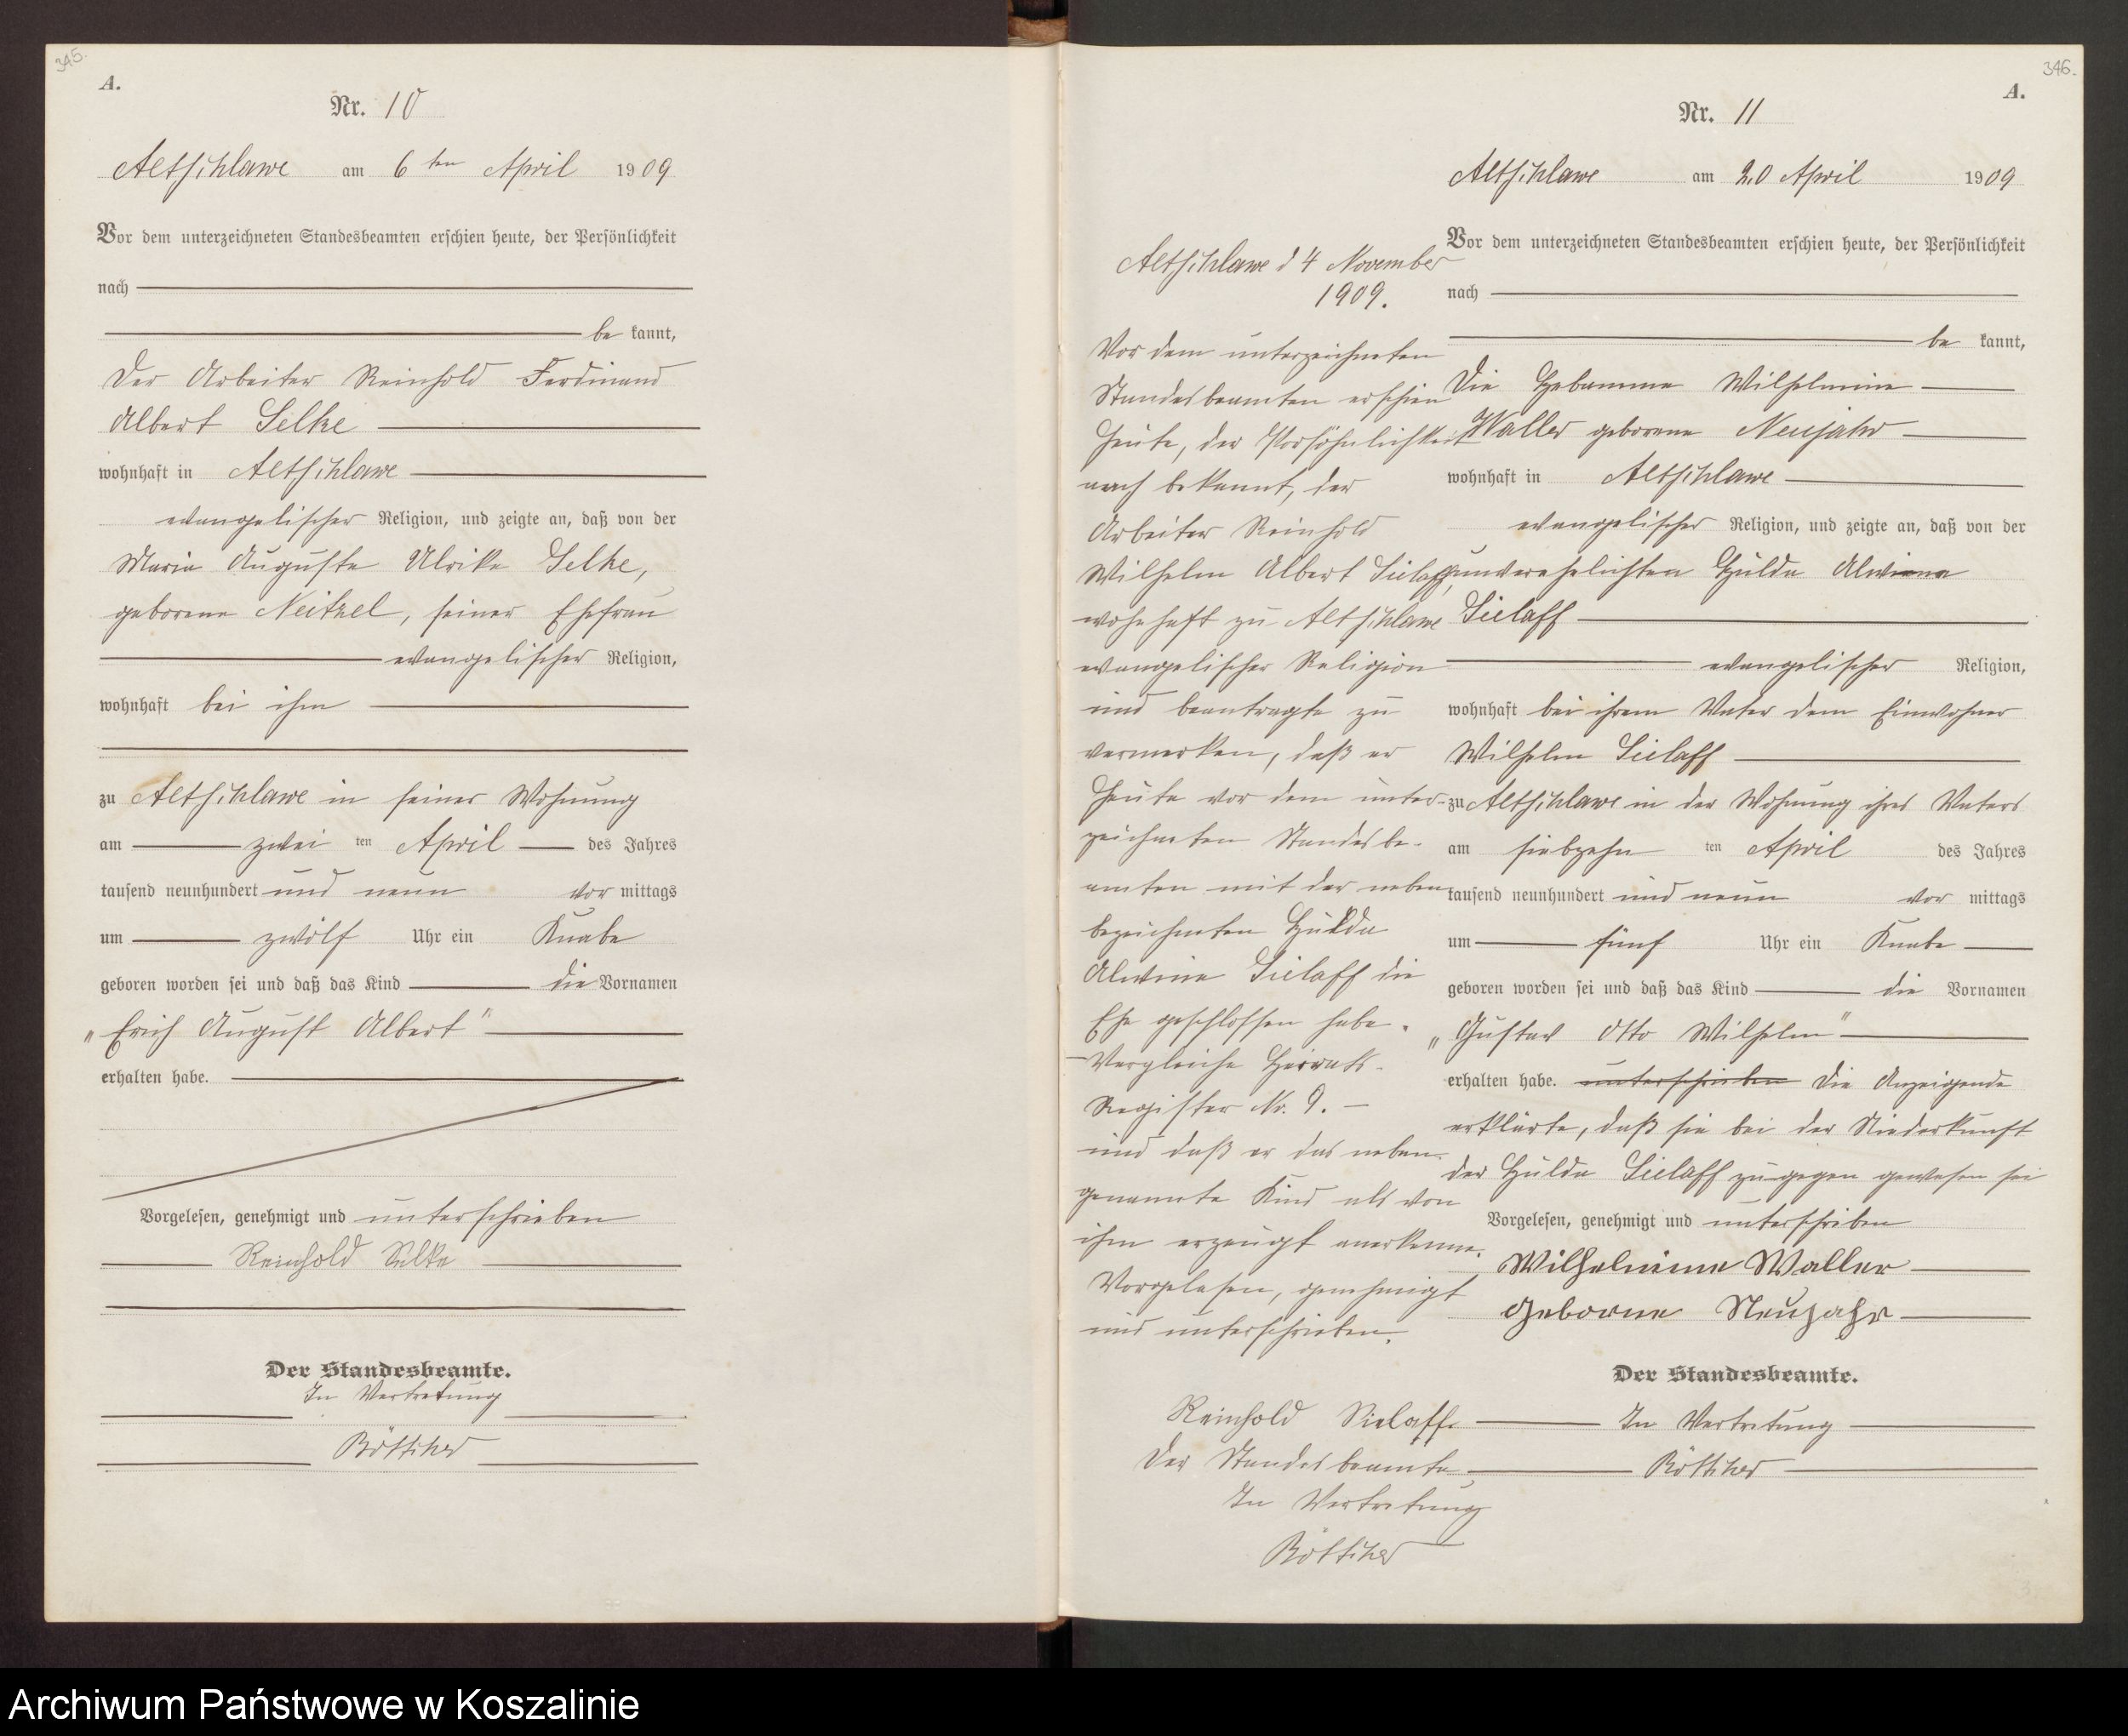 345.
A.
Nr. 10
Altschlawe am 6ten April 1909
Vor dem unterzeichneten Standesbeamten erschien heute, der Persönlichkeit
nach
be kannt,
Der Arbeiter Reinhold Ferdinand
Albert Selke
wohnhaft in Altschlawe
evangelischer Religion, und zeigte an, daß von der
Maria Auguste Ulrike Selke,
geborene Neitzel, seiner Ehefrau
evangelischer Religion,
wohnhaft bei ihm
zu Altschlawe in seiner Wohnung
am zwei ten April des Jahres
tausend neunhundert und neun vor mittags
um zwölf Uhr ein Knabe
geboren worden sei und daß das Kind die Vornamen
„Erich August Albert"
erhalten habe.
Vorgelesen, genehmigt und unterschrieben
Reinhold Selke
Der Standesbeamte.
In Vertretung
Böttcher
346.
A.
Nr. 11
Altschlawe am 20 April 1909
Vor dem unterzeichneten Standesbeamten erschien heute, der Persönlichkeit
nach
be kannt,
Die Hebamme Wilhelmine
Waller geborene Neujahr
wohnhaft in Altschlawe
evangelischer Religion, und zeigte an, daß von der
unverehelichten Hulda Alwine
Sielaff
evangelischer Religion,
wohnhaft bei ihrem Vater dem Einwohner
Wilhelm Sielaff
zu Altschlawe in der Wohnung ihres Vaters
am siebzehn ten April des Jahres
tausend neunhundert und neun vor mittags
um fünf Uhr ein Knabe
geboren worden sei und daß das Kind die Vornamen
„Gustav Otto Wilhelm"
erhalten habe. unterschrieben Die Anzeigende
erklärte, daß sie bei der Niederkunft
der Hulda Sielaff zugegen gewesen sei
Vorgelesen, genehmigt und unterschriben
Wilhelmine Waller
geborne Neujahr
Der Standesbeamte.
In Vertretung
Böttcher
Altschlawe d 4 November
1909.
Vor dem unterzeichneten
Standesbeamten erschien
heute, der Persöhnlichkeit
nach bekannt, der
Arbeiter Reinhold
Wilhelm Albert Sielaff,
wohnhaft zu Altschlawe
evangelischer Religion
und beantragte zu
vermerken, daß er
heute vor dem unter-
zeichneten Standesbe-
amten mit der neben
bezeichneten Hulda
Alwine Sielaff die
Ehe geschlossen habe.
– Vergleiche Heirats-
Register Nr. 9. –
und daß er das neben-
genannte Kind als von
ihm erzeugt anerkenne.
Vorgelesen, genehmigt
und unterschrieben.
Reinhold Sielaff.
Der Standesbeamte
In Vertretung
Böttcher
Archiwum Państwowe w Koszalinie